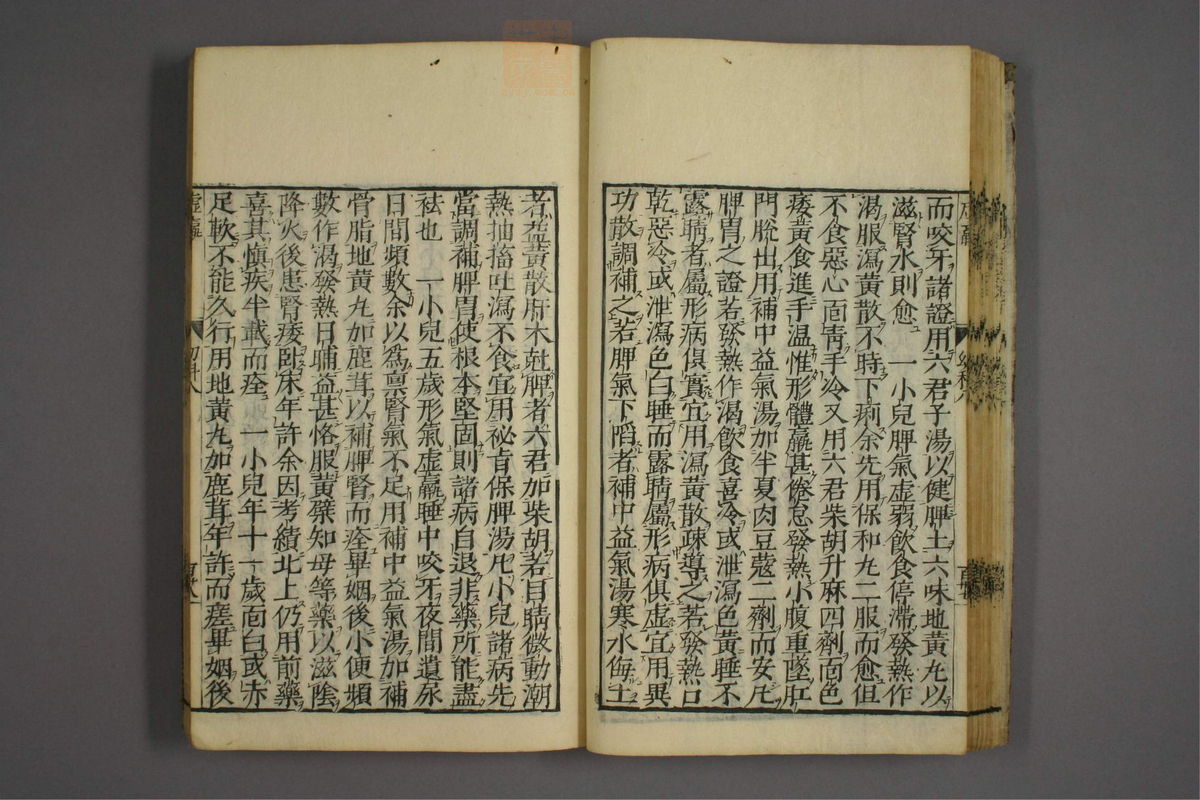 而咬牙諸證用六君子湯以健脾土六味地黃丸以
滋腎水則愈　一小兒脾氣虛弱飲食停滯發熱作
渴服瀉黃散不時下痢余先用保和丸二服而愈但
不食惡心面靑手冷又用六君柴胡升麻四劑面色
痿黃食進手溫惟形體羸甚倦怠發熱小腹重墜肛
門脫出用補中益氣湯加半夏肉豆蔻二劑而安凡
脾胃之證若發熱作渴飲食喜冷或泄瀉色黃睡不
露睛者屬形病俱實宜用瀉黃散疎導之若發熱口
乾惡冷或泄瀉色白睡而露睛屬形病俱虛宜用異
功散調補之若脾氣下陷者補中益氣湯寒水侮土
者益黃散肝木尅脾者六君加柴胡若目睛微動潮
熱抽搐吐瀉不食宜用祕旨保脾湯凡小兒諸病先
當調補脾胃使根本堅固則諸病自退非藥所能盡
袪也　一小兒五歲形氣虛羸睡中咬牙夜間遺尿
日間頻數余以爲禀腎氣不足用補中益氣湯加補
骨脂地黃丸加鹿茸以補脾腎而痊畢姻後小便頻
數作渴發熱日晡益甚恪服黃蘗知母等藥以滋陰
降火後患腎痿臥床年許余因考績北上仍用前藥
喜其愼疾半載而痊　一小兒年十一歲面白或赤
足軟不能久行用地黃丸加鹿茸年許而瘥畢姻後
虛羸